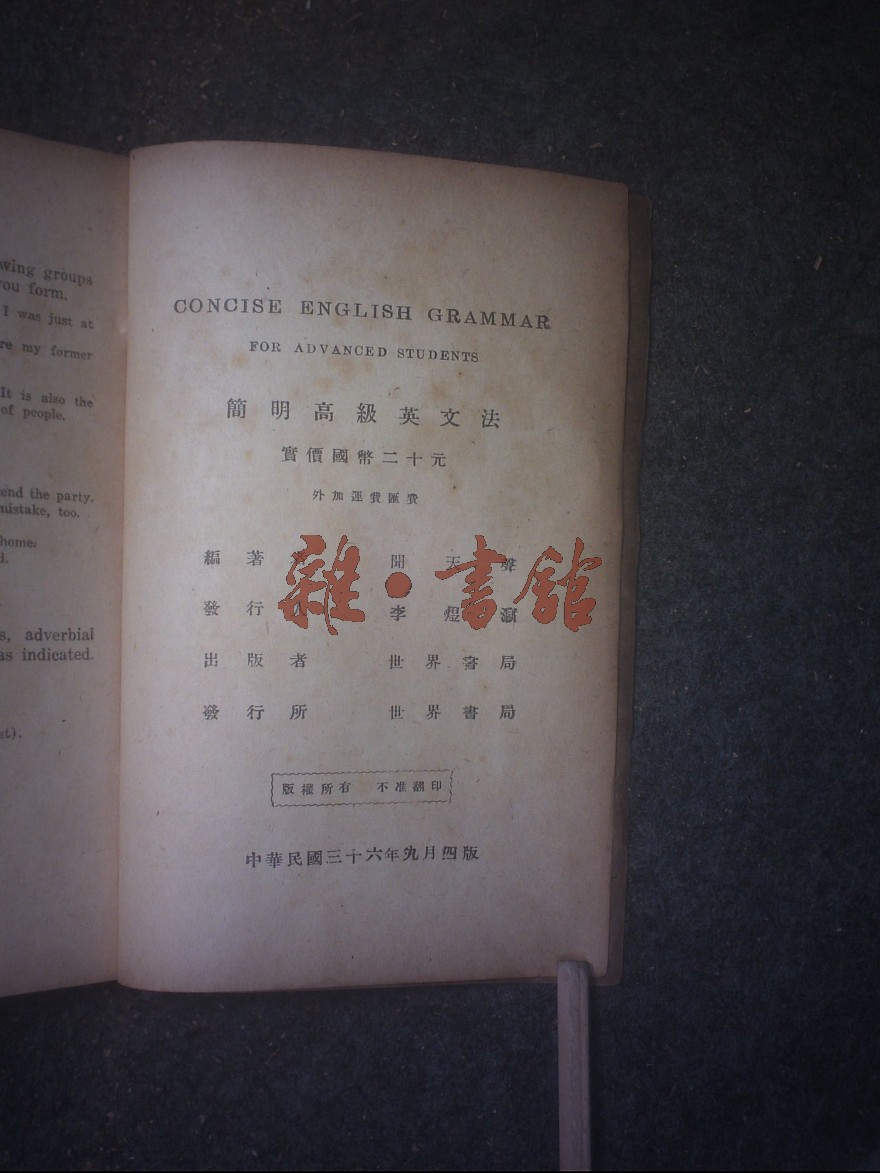 wing groups
ou form.
I was just at
re my former
It is also the
of people.
end the party.
mistake, too.
home.
d.
s, adverbial
as indicated.
st).
CONCISE ENGLISH GRAMMAR
FOR ADVANCED STUDENTS
簡明高級英文法
實價國幣二十元
外加運費匯費
編著 聞天聲
發行人 李煜瀛
雜·書館
出版者 世界書局
發行所 世界書局
版權所有 不准翻印
中華民國三十六年九月四版